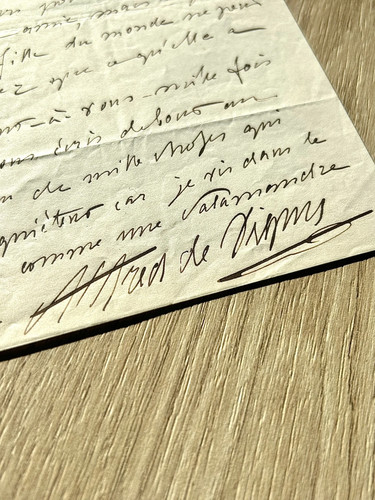 fille du monde ne peut
que ce qu'elle a
à vous mille fois
vous écris debout au
de mille choses qui
car je vis dans le
comme une Salamandre
Alfred de Vigny